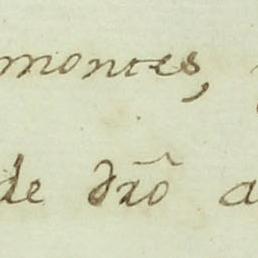 montes,
de Irão a